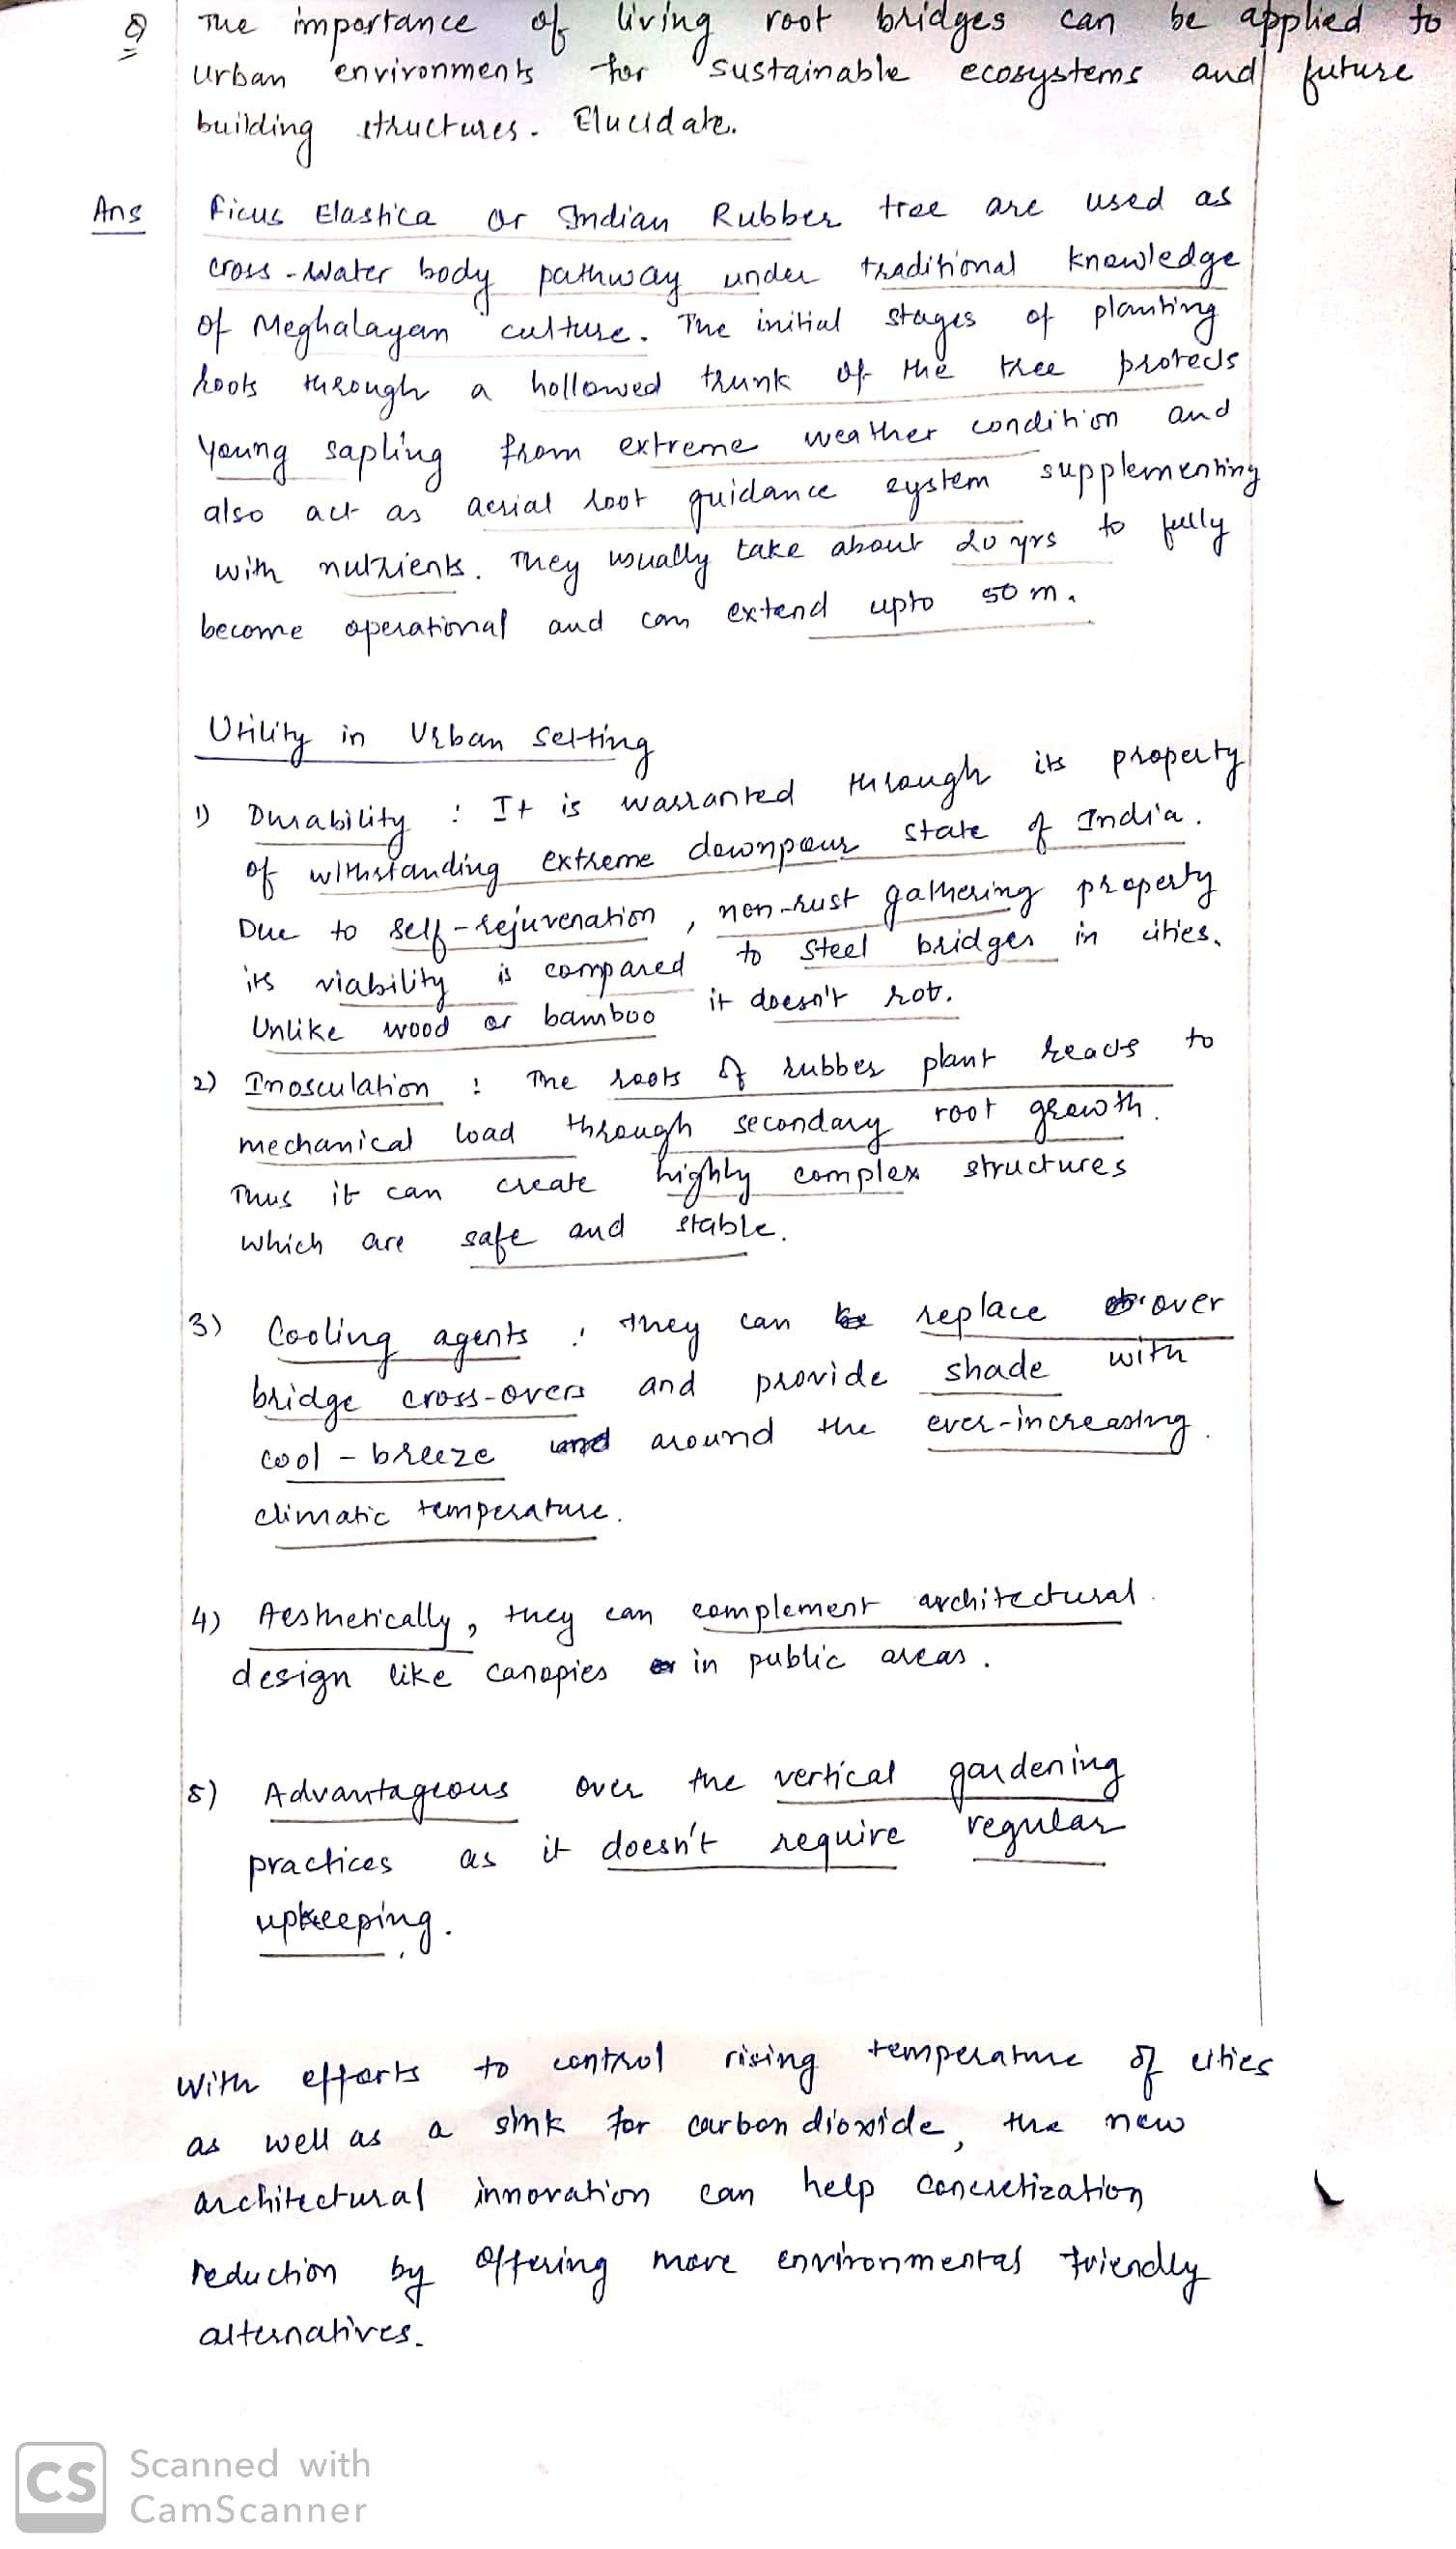 Q The importance of living root bridges can be applied to
urban environments for sustainable ecosystems and future
building structures. Elucidate.
Ans Ficus Elastica or Indian Rubber tree are used as
cross-water body pathway under traditional knowledge
of Meghalayan culture. The initial stages of planting
roots through a hollowed trunk of the tree protects
young sapling from extreme weather condition and
also act as aerial root guidance system supplementing
with nutrients. They usually take about 20 yrs to fully
become operational and can extend upto 50 m.
Utility in Urban Setting
1) Durability : It is warranted through its property
of withstanding extreme downpour state of India.
Due to self-rejuvenation, non-rust gathering property
its viability is compared to steel bridges in cities.
Unlike wood or bamboo it doesn't rot.
2) Inosculation : The roots of rubber plant reacts to
mechanical load through secondary root growth.
Thus it can create highly complex structures
which are safe and stable.
3) Cooling agents : They can replace over
bridge cross-overs and provide shade with
cool-breeze around the ever-increasing
climatic temperature.
4) Aesthetically, they can complement architectural
design like canopies in public areas.
5) Advantageous over the vertical gardening
practices as it doesn't require regular
upkeeping.
With efforts to control rising temperature of cities
as well as a sink for carbon dioxide, the new
architectural innovation can help concretization
reduction by offering more environmental friendly
alternatives.
CS Scanned with
CamScanner